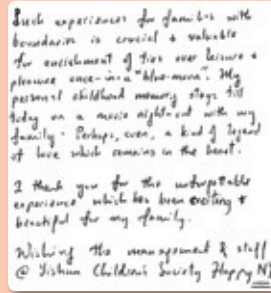 Such experiences for families with
boundaries is crucial & valuable
for enrichment of ties over leisure &
pleasure once-in-a "blue-moon". My
personal childhood memory stays till
today on a movie night-out with my
family. Perhaps, even, a kind of legend
of love which remains in the heart.
I thank you for the unforgettable
experience which has been exciting &
beautiful for my family.
Wishing the management & staff
@ Yishun Children's Society Happy NY